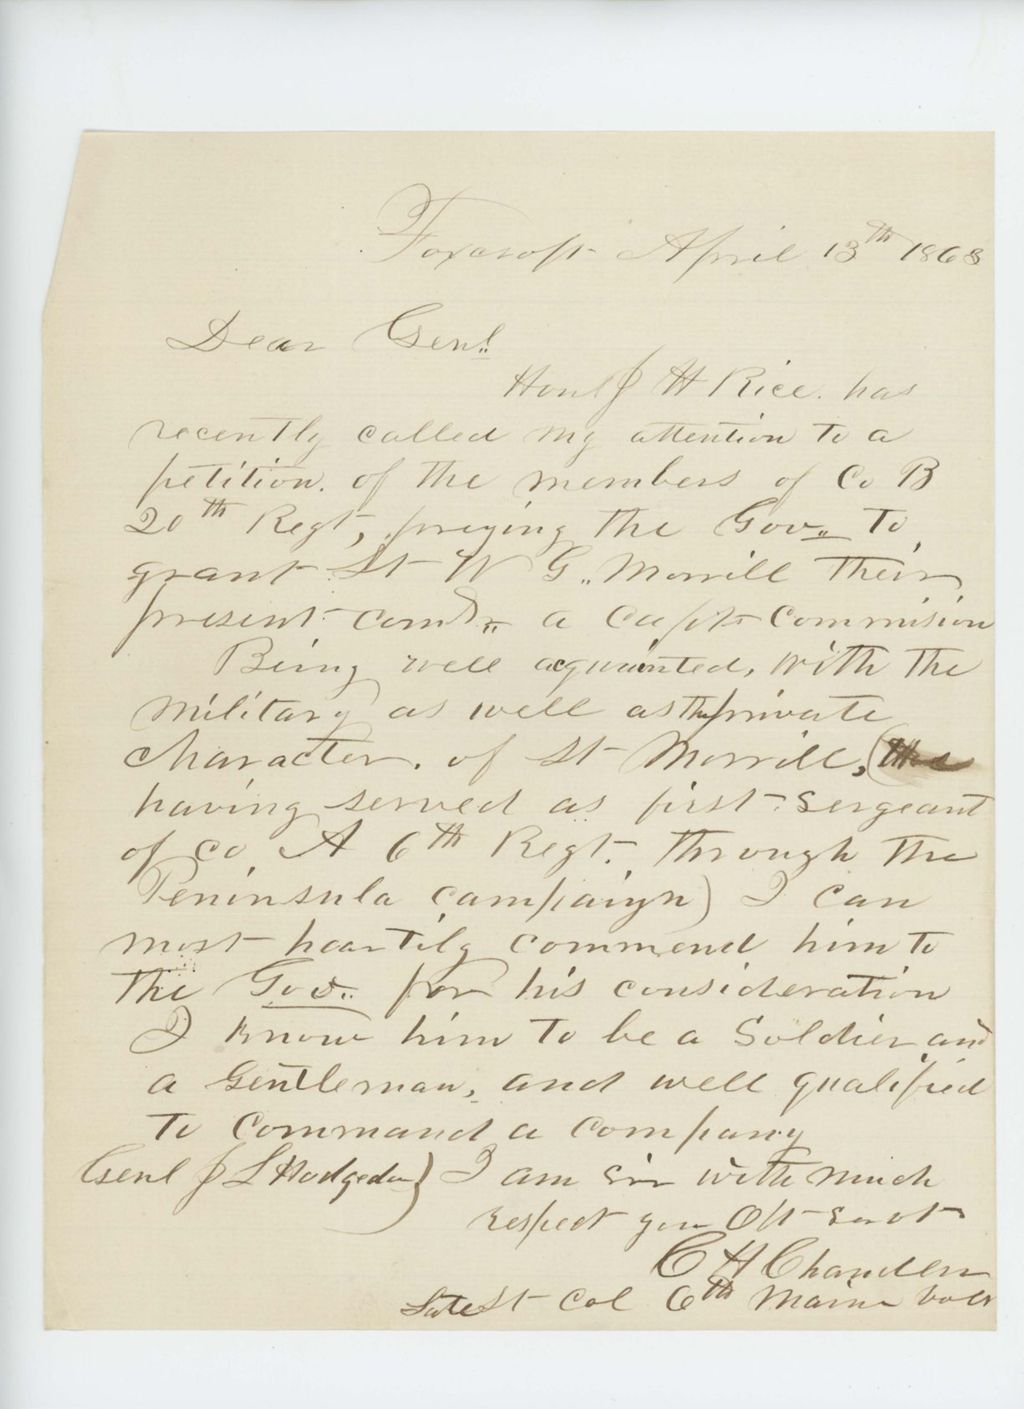 Foxcroft April 13th 1863
Dear Genl.
Honl J H Rice. has
recently called my attention to a
petition. of the members of Co B
20th Regt, praying the Gov.. to
grant Lt W G.. Morrill their
present comd.. a Capts Commision
Being well acquainted, with the
military as well as the private
character. of Lt Morrill, (
having served as first Sergeant
of co A 6th Regt. through the
Peninsula campaign) I can
most heartily commend him to
the Gov.. for his consideration
I know him to be a Soldier and
a Gentleman, and well qualified
to command a company
Genl J L Hodgdon) I am Sir with much
respect your Obt Servt
C H Chandler
Late Lt Col 6th Maine Vols